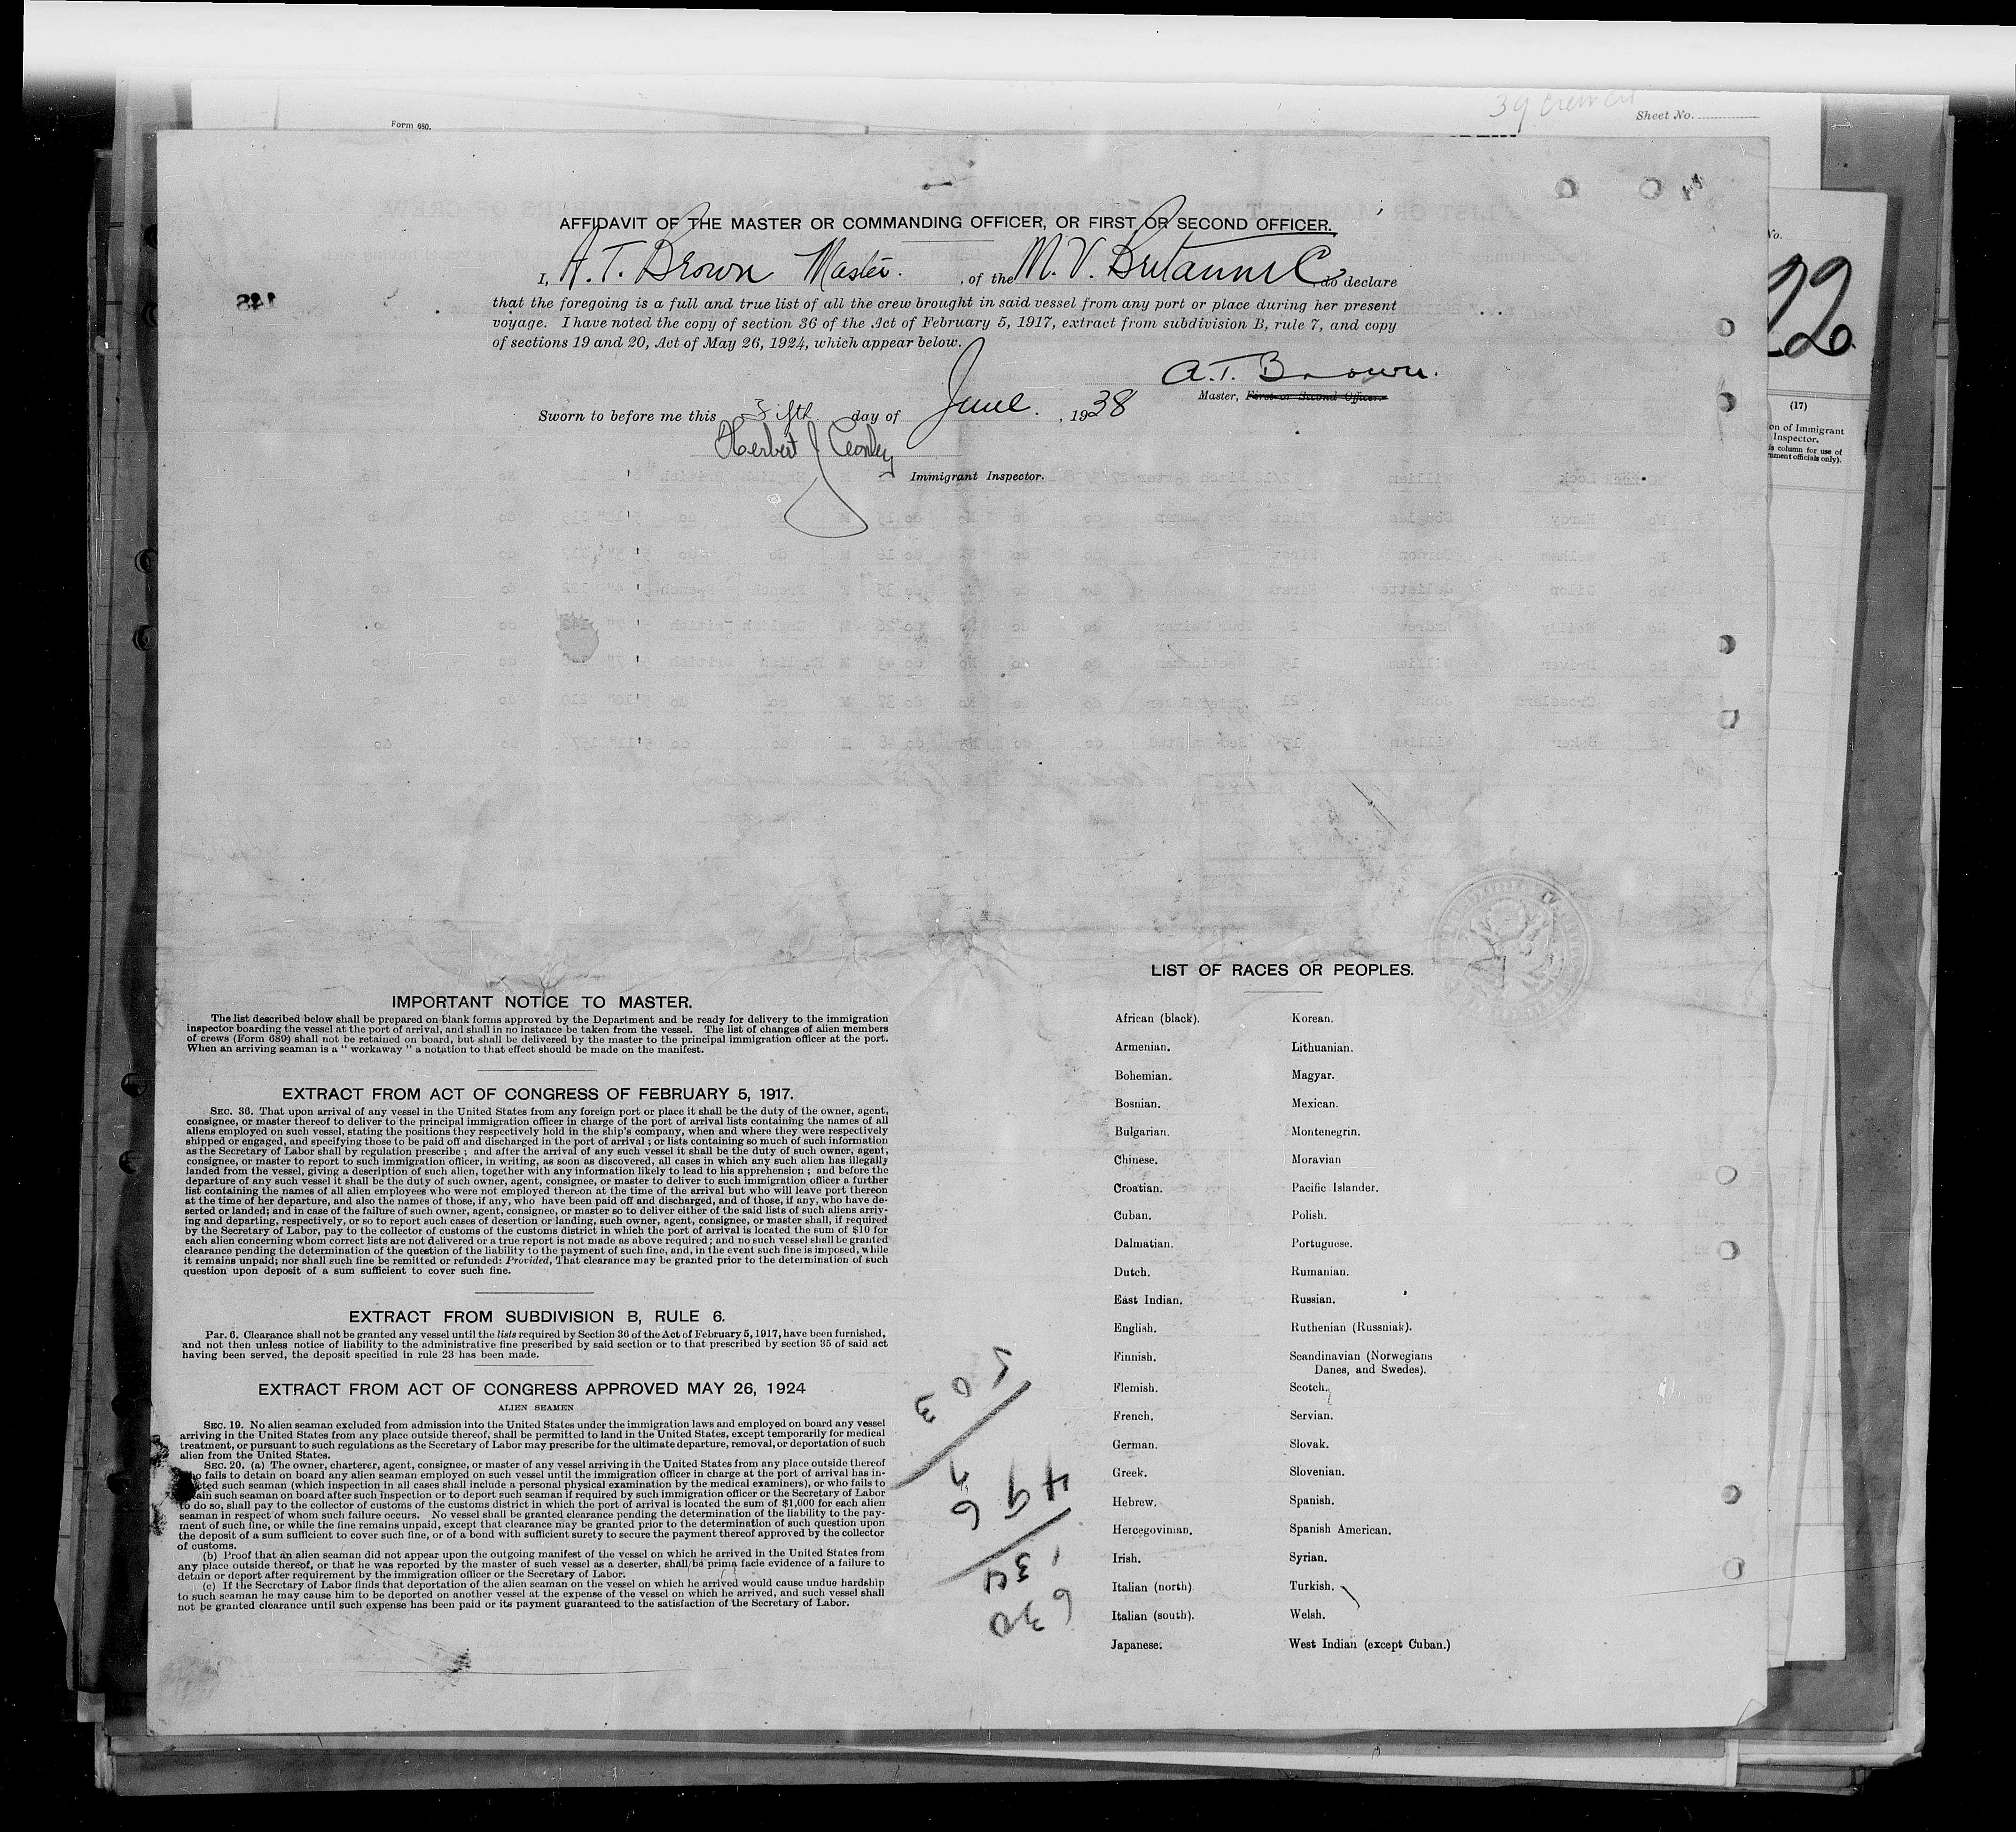 39 crew
Form 680.
Sheet No.
AFFIDAVIT OF THE MASTER OR COMMANDING OFFICER, OR FIRST OR SECOND OFFICER.
I, A. T. Brown Master. , of the M. V. Britannic do declare
that the foregoing is a full and true list of all the crew brought in said vessel from any port or place during her present
voyage. I have noted the copy of section 36 of the Act of February 5, 1917, extract from subdivision B, rule 7, and copy
of sections 19 and 20, Act of May 26, 1924, which appear below.
A. T. Brown.
Master, First or Second Officer.
Sworn to before me this Fifth day of June. , 1938
Herbert J
Immigrant Inspector.
148
No.
22
(17)
on of Immigrant
Inspector.
is column for use of
rnment officials only).
IMPORTANT NOTICE TO MASTER.
The list described below shall be prepared on blank forms approved by the Department and be ready for delivery to the immigration
inspector boarding the vessel at the port of arrival, and shall in no instance be taken from the vessel. The list of changes of alien members
of crews (Form 689) shall not be retained on board, but shall be delivered by the master to the principal immigration officer at the port.
When an arriving seaman is a " workaway " a notation to that effect should be made on the manifest.
EXTRACT FROM ACT OF CONGRESS OF FEBRUARY 5, 1917.
SEC. 36. That upon arrival of any vessel in the United States from any foreign port or place it shall be the duty of the owner, agent,
consignee, or master thereof to deliver to the principal immigration officer in charge of the port of arrival lists containing the names of all
aliens employed on such vessel, stating the positions they respectively hold in the ship's company, when and where they were respectively
shipped or engaged, and specifying those to be paid off and discharged in the port of arrival ; or lists containing so much of such information
as the Secretary of Labor shall by regulation prescribe ; and after the arrival of any such vessel it shall be the duty of such owner, agent,
consignee, or master to report to such immigration officer, in writing, as soon as discovered, all cases in which any such alien has illegally
landed from the vessel, giving a description of such alien, together with any information likely to lead to his apprehension ; and before the
departure of any such vessel it shall be the duty of such owner, agent, consignee, or master to deliver to such immigration officer a further
list containing the names of all alien employees who were not employed thereon at the time of the arrival but who will leave port thereon
at the time of her departure, and also the names of those, if any, who have been paid off and discharged, and of those, if any, who have de-
serted or landed; and in case of the failure of such owner, agent, consignee, or master so to deliver either of the said lists of such aliens arriv-
ing and departing, respectively, or so to report such cases of desertion or landing, such owner, agent, consignee, or master shall, if required
by the Secretary of Labor, pay to the collector of customs of the customs district in which the port of arrival is located the sum of $10 for
each alien concerning whom correct lists are not delivered or a true report is not made as above required ; and no such vessel shall be granted
clearance pending the determination of the question of the liability to the payment of such fine, and, in the event such fine is imposed, while
it remains unpaid; nor shall such fine be remitted or refunded: Provided, That clearance may be granted prior to the determination of such
question upon deposit of a sum sufficient to cover such fine.
EXTRACT FROM SUBDIVISION B, RULE 6.
Par. 6. Clearance shall not be granted any vessel until the lists required by Section 36 of the Act of February 5, 1917, have been furnished,
and not then unless notice of liability to the administrative fine prescribed by said section or to that prescribed by section 35 of said act
having been served, the deposit specified in rule 23 has been made.
EXTRACT FROM ACT OF CONGRESS APPROVED MAY 26, 1924
ALIEN SEAMEN
SEC. 19. No alien seaman excluded from admission into the United States under the immigration laws and employed on board any vessel
arriving in the United States from any place outside thereof, shall be permitted to land in the United States, except temporarily for medical
treatment, or pursuant to such regulations as the Secretary of Labor may prescribe for the ultimate departure, removal, or deportation of such
alien from the United States.
SEC. 20. (a) The owner, charterer, agent, consignee, or master of any vessel arriving in the United States from any place outside thereof
who fails to detain on board any alien seaman employed on such vessel until the immigration officer in charge at the port of arrival has in-
spected such seaman (which inspection in all cases shall include a personal physical examination by the medical examiners), or who fails to
detain such seaman on board after such inspection or to deport such seaman if required by such immigration officer or the Secretary of Labor
to do so, shall pay to the collector of customs of the customs district in which the port of arrival is located the sum of $1,000 for each alien
seaman in respect of whom such failure occurs. No vessel shall be granted clearance pending the determination of the liability to the pay-
ment of such fine, or while the fine remains unpaid, except that clearance may be granted prior to the determination of such question upon
the deposit of a sum sufficient to cover such fine, or of a bond with sufficient surety to secure the payment thereof approved by the collector
of customs.
(b) Proof that an alien seaman did not appear upon the outgoing manifest of the vessel on which he arrived in the United States from
any place outside thereof, or that he was reported by the master of such vessel as a deserter, shall be prima facie evidence of a failure to
detain or deport after requirement by the immigration officer or the Secretary of Labor.
(c) If the Secretary of Labor finds that deportation of the alien seaman on the vessel on which he arrived would cause undue hardship
to such seaman he may cause him to be deported on another vessel at the expense of the vessel on which he arrived, and such vessel shall
not be granted clearance until such expense has been paid or its payment guaranteed to the satisfaction of the Secretary of Labor.
LIST OF RACES OR PEOPLES.
African (black). Korean.
Armenian. Lithuanian.
Bohemian. Magyar.
Bosnian. Mexican.
Bulgarian. Montenegrin.
Chinese. Moravian
Croatian. Pacific Islander.
Cuban. Polish.
Dalmatian. Portuguese.
Dutch. Rumanian.
East Indian. Russian.
English. Ruthenian (Russniak).
Finnish. Scandinavian (Norwegians
Danes, and Swedes).
Flemish. Scotch.
French. Servian.
German. Slovak.
Greek. Slovenian.
Hebrew. Spanish.
Hercegovinian. Spanish American.
Irish. Syrian.
Italian (north) Turkish.
Italian (south). Welsh.
Japanese. West Indian (except Cuban.)